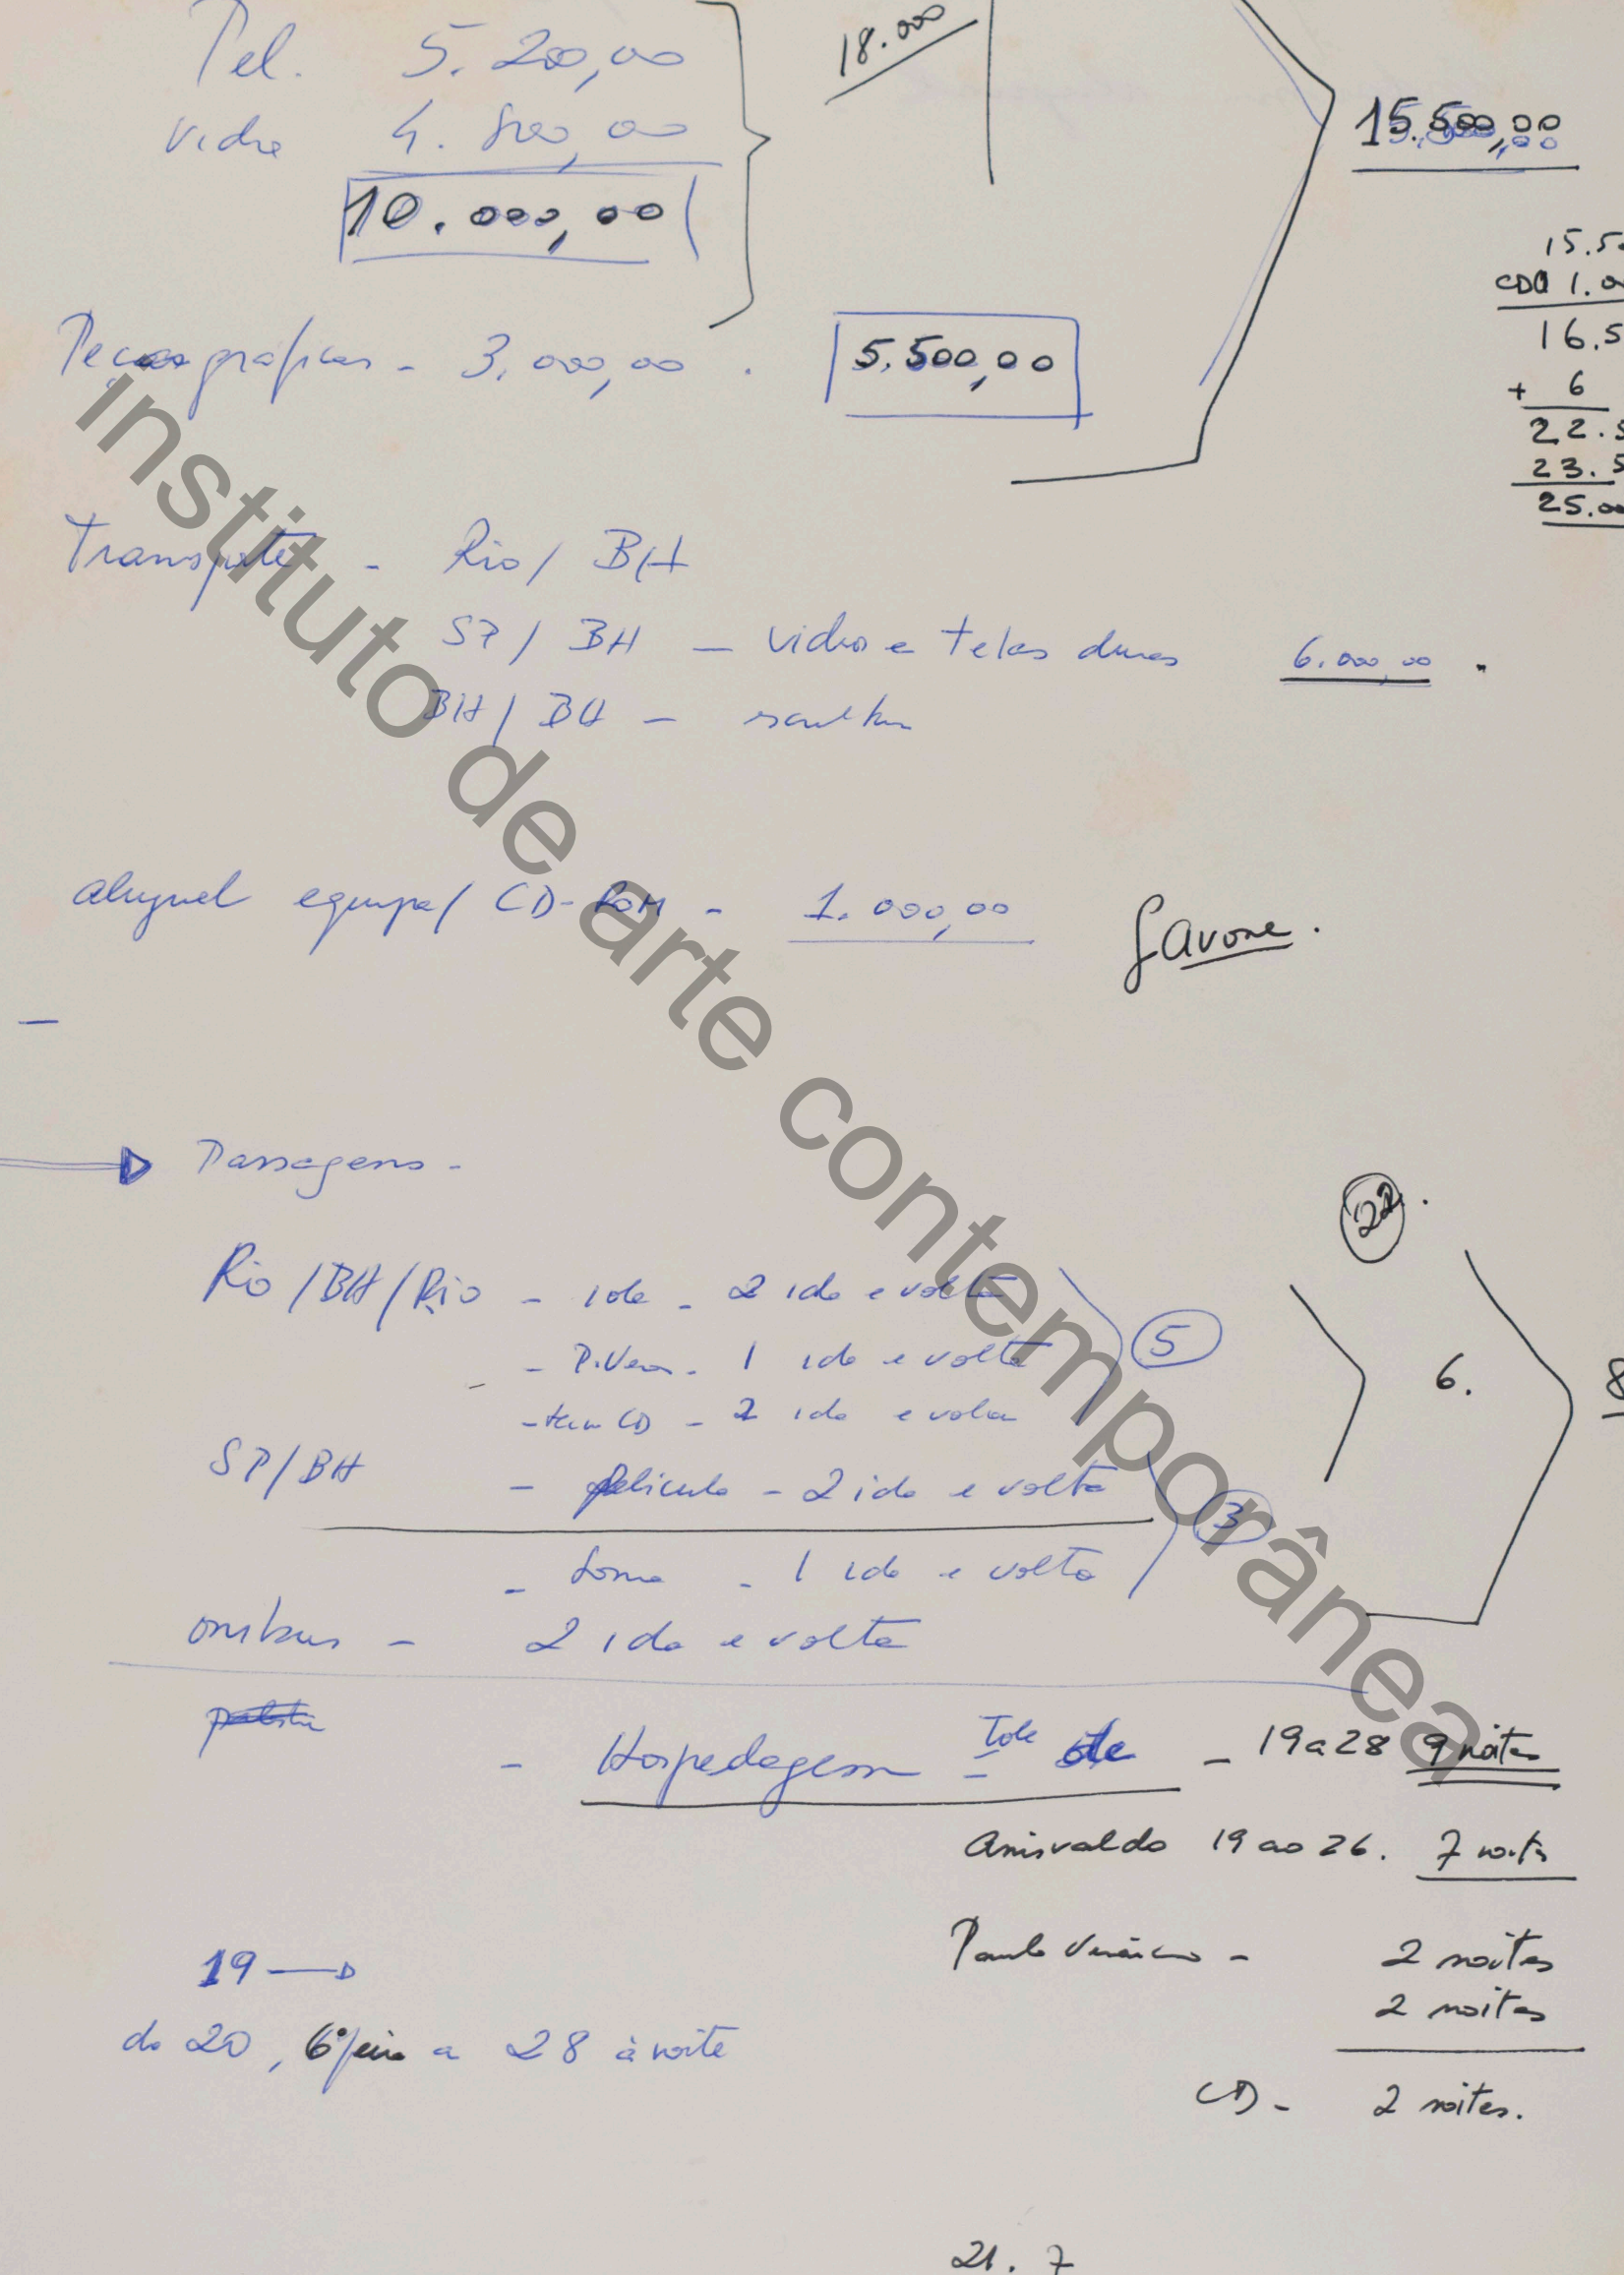 Pel. 5.200,00
18.000
vidro 4.800,00
15.500,00
10.000,00
15.5
CD 1.0
16.5
+ 6
22.5
23.5
25.00
Peças graficas - 3.000,00 .
5.500,00
Transporte - Rio / BH
SP / BH - vidro e telas duras 6.000,00
BH / BH -
aluguel equipa/ CD-ROM - 1.000,00
Passagens -
22.
Rio / BH / Rio - Iole - 2 ida e volta
5
- P. Ven. - 1 ida e volta
6.
8
- CD - 2 ida e volta
SP / BH - pelicula - 2 ida e volta
3
- 1 ida e volta
onibus - 2 ida e volta
- Hospedagem - Iole - 19 a 28 9 noites
Anisvaldo 19 ao 26. 7 noites
Paulo Venâncio - 2 noites
2 noites
19 →
do 20, 6ª feira a 28 à noite
CD - 2 noites.
21. 7
instituto de arte contemporânea